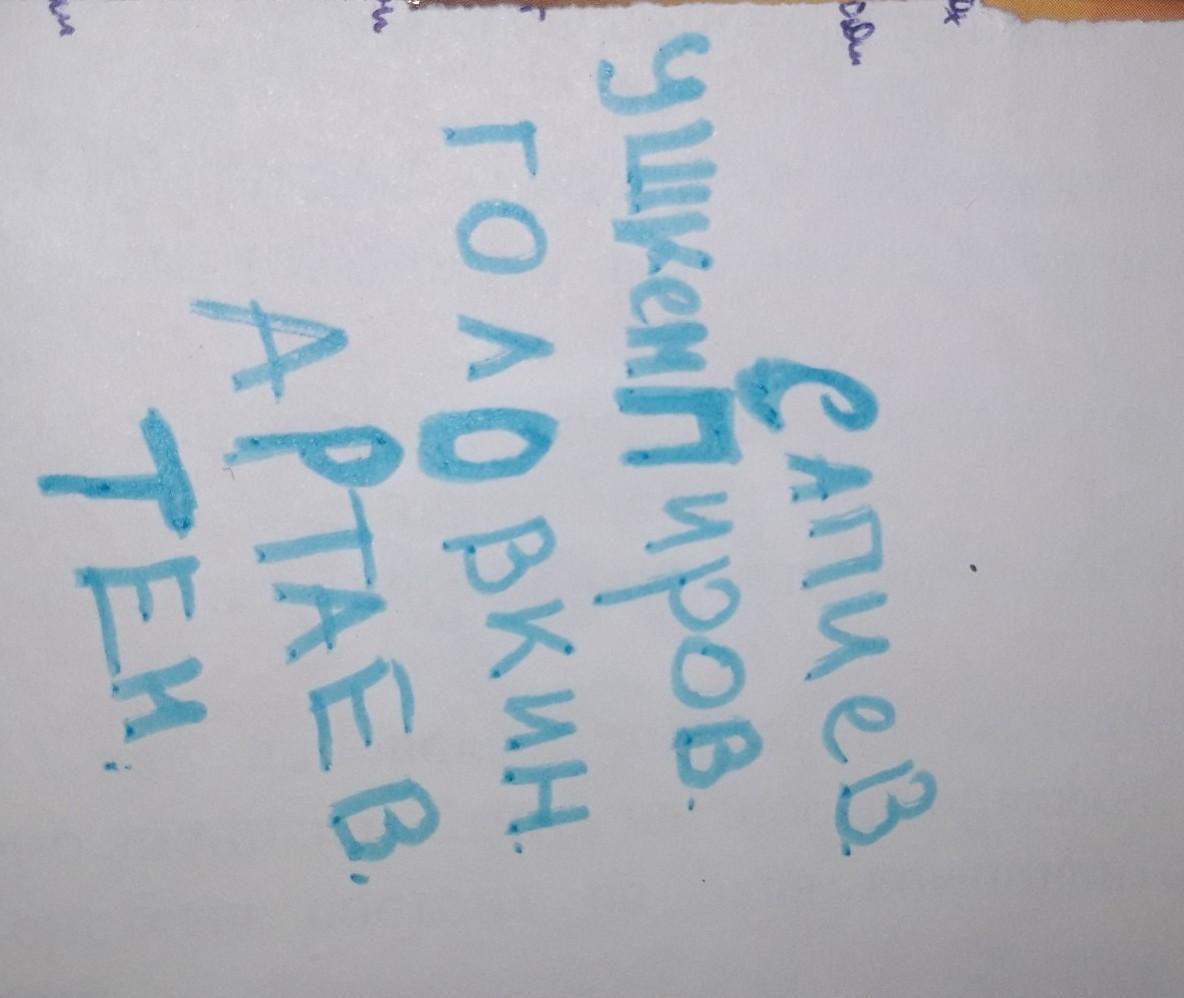 СапиеВ
Ушкемпиров.
ГОЛОВКИН.
АРТАЕВ.
ТЕН.